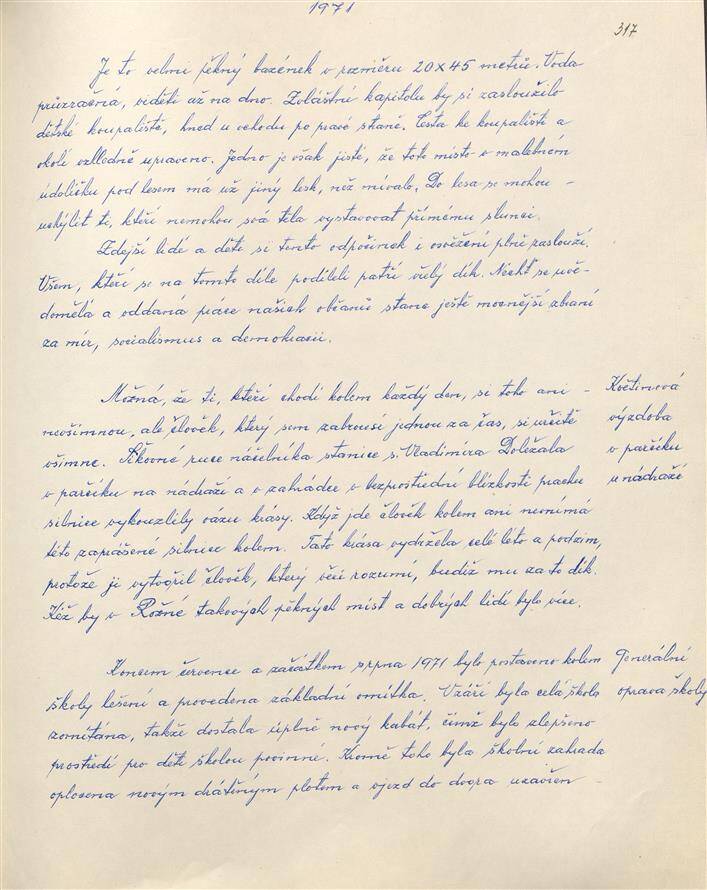 1971
317
Je to velmi pěkný bazének v rozměru 20x45 metrů. Voda
průzračná, viděti až na dno. Zvláštní kapitolu by si zasloužilo
dětské koupaliště, hned u vchodu po pravé straně. Cesta ke koupališti a
okolí vzhledně upraveno. Jedno je však jisté, že toto místo v malebném
údolíčku pod lesem má už jiný lesk, než mívalo. Do lesa se mohou -
uchýlit ti, kteří nemohou svá těla vystavovat přímému slunci.
Zdejší lidé a děti si tento odpočinek i osvěžení plně zaslouží.
Všem, kteří se na tomto díle podíleli patří vřelý dík. Nechť se uvě-
domělá a oddaná práce našich občanů stane ještě mocnější zbraní
za mír, socialismus a demokracii.
Možná, že ti, kteří chodí kolem každý den, si toho ani -
nevšimnou, ale člověk, který sem zabrousí jednou za čas, si určitě
všimne. Šikovné ruce náčelníka stanice s. Vladimíra Doležala
v parčíku na nádraží a v zahrádce v bezprostřední blízkosti prachu
silnice vykouzlily oázu krásy. Když jde člověk kolem ani nevnímá
této zaprášené silnice kolem. Tato krása vydržela celé léto a podzim,
protože ji vytvořil člověk, který věci rozumí, budiž mu za to dík.
Kéž by v Rožné takových pěkných míst a dobrých lidí bylo více.
Květinová
výzdoba
v parčíku
u nádraží
Koncem července a začátkem srpna 1971 bylo postaveno kolem
školy lešení a provedena základní omítka. V září byla celá škola
zornitána, takže dostala úplně nový kabát, čímž bylo zlepšeno
prostředí pro děti školou povinné. Kromě toho byla školní zahrada
oplocena novým drátěným plotem a vjezd do dvora uzavřen -
Generální
oprava školy